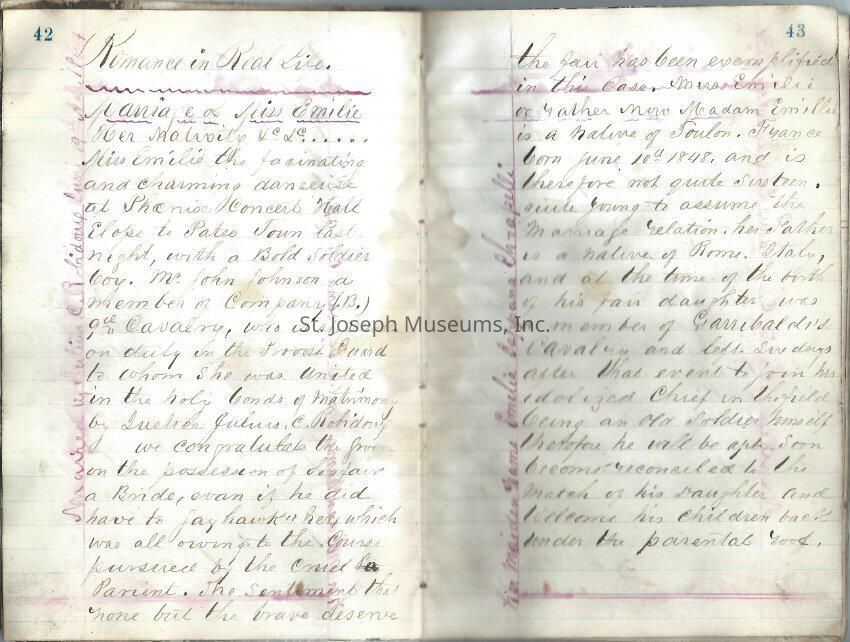 42
Romance in Real Live.
Marriage of Miss Emilie
Her Nativity &c &c......
Miss Emilie the facinating
and charming danseuse
at Phœnix Concert Hall
Elope to Pates Town last
night, with a Bold Soldier
boy. Mr John Johnson a
member of Company (B.)
9th Cavalry, who is
on duty in the Provost Guard
to whom She was United
in the holy bonds of Matrimony
by Justice Julius. C. Robidoux
we congratulate the groom
on the possession of so fair
a Bride, evan if he did
have to "jayhawk" her, which
was all owing to the Curse
pursered by the cruel
Parient. The Sentiment that
none but the brave deserve
Married by Julius C. Robidoux
43
the fair has been exemplified
in this Case. Miss Emilie
or rather Now Madam Emillie
is a native of Toulon. France
born June 10d 1848. and is
therefore not quite Sixteen.
quite young to assume the
Marriage relation. her Father
is a native of Rome. Italy,
and at the time of the birth
of his fair daughter was
a member of Garribaldis
Cavalry and left Six days
after that event to join his
idolized Chief in the field
being an Old Soldier himself
therefore he will be apt Soon
become reconciled to the
Match of his Daughter and
Wellcome his children back
under the parental roof.
her Maiden Name Emelie
St. Joseph Museums, Inc.